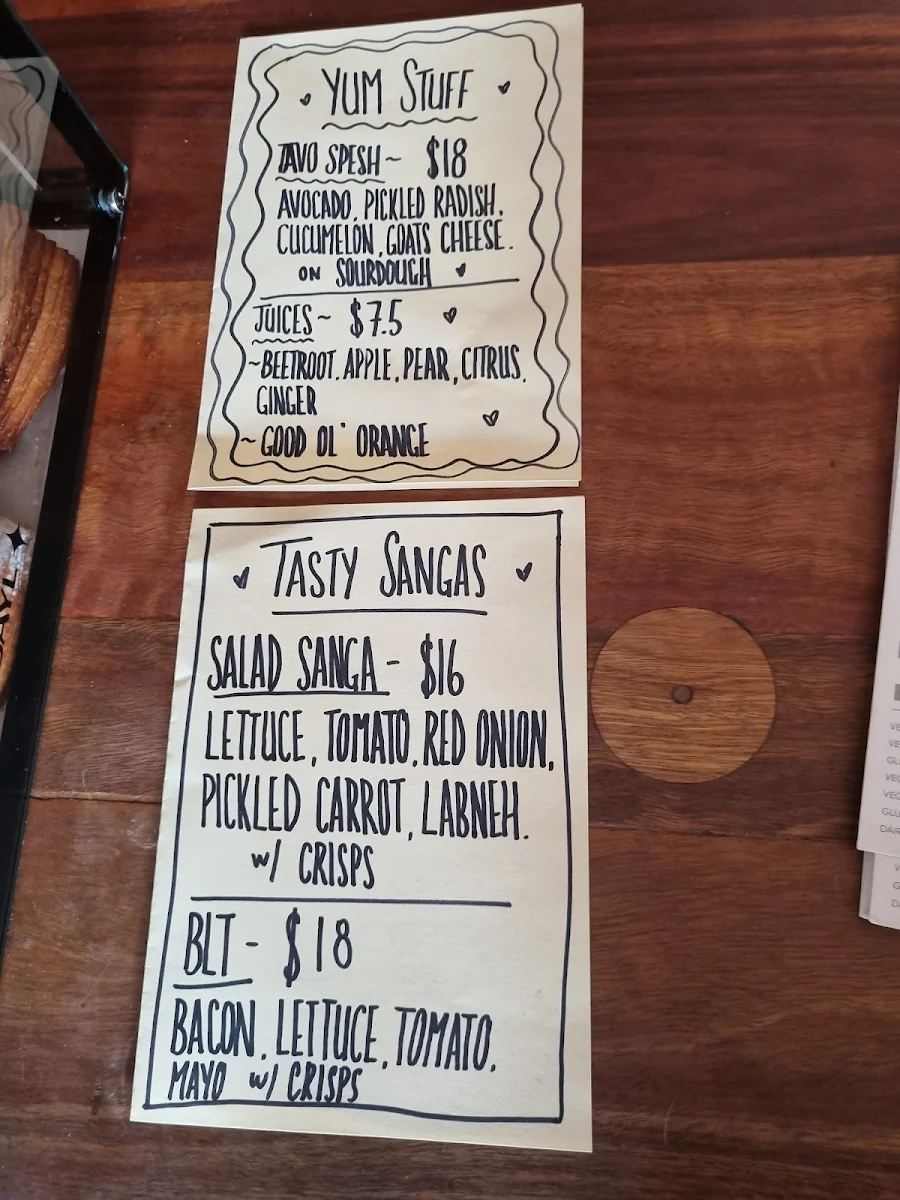 YUM STUFF
AVO SPESH ~ $18
AVOCADO, PICKLED RADISH,
CUCUMELON, GOATS CHEESE.
ON SOURDOUGH
JUICES ~ $7.5
~BEETROOT, APPLE, PEAR, CITRUS,
GINGER
~ GOOD OL' ORANGE
TASTY SANGAS
SALAD SANGA - $16
LETTUCE, TOMATO, RED ONION,
PICKLED CARROT, LABNEH.
w/ CRISPS
BLT - $18
BACON, LETTUCE, TOMATO,
MAYO w/ CRISPS